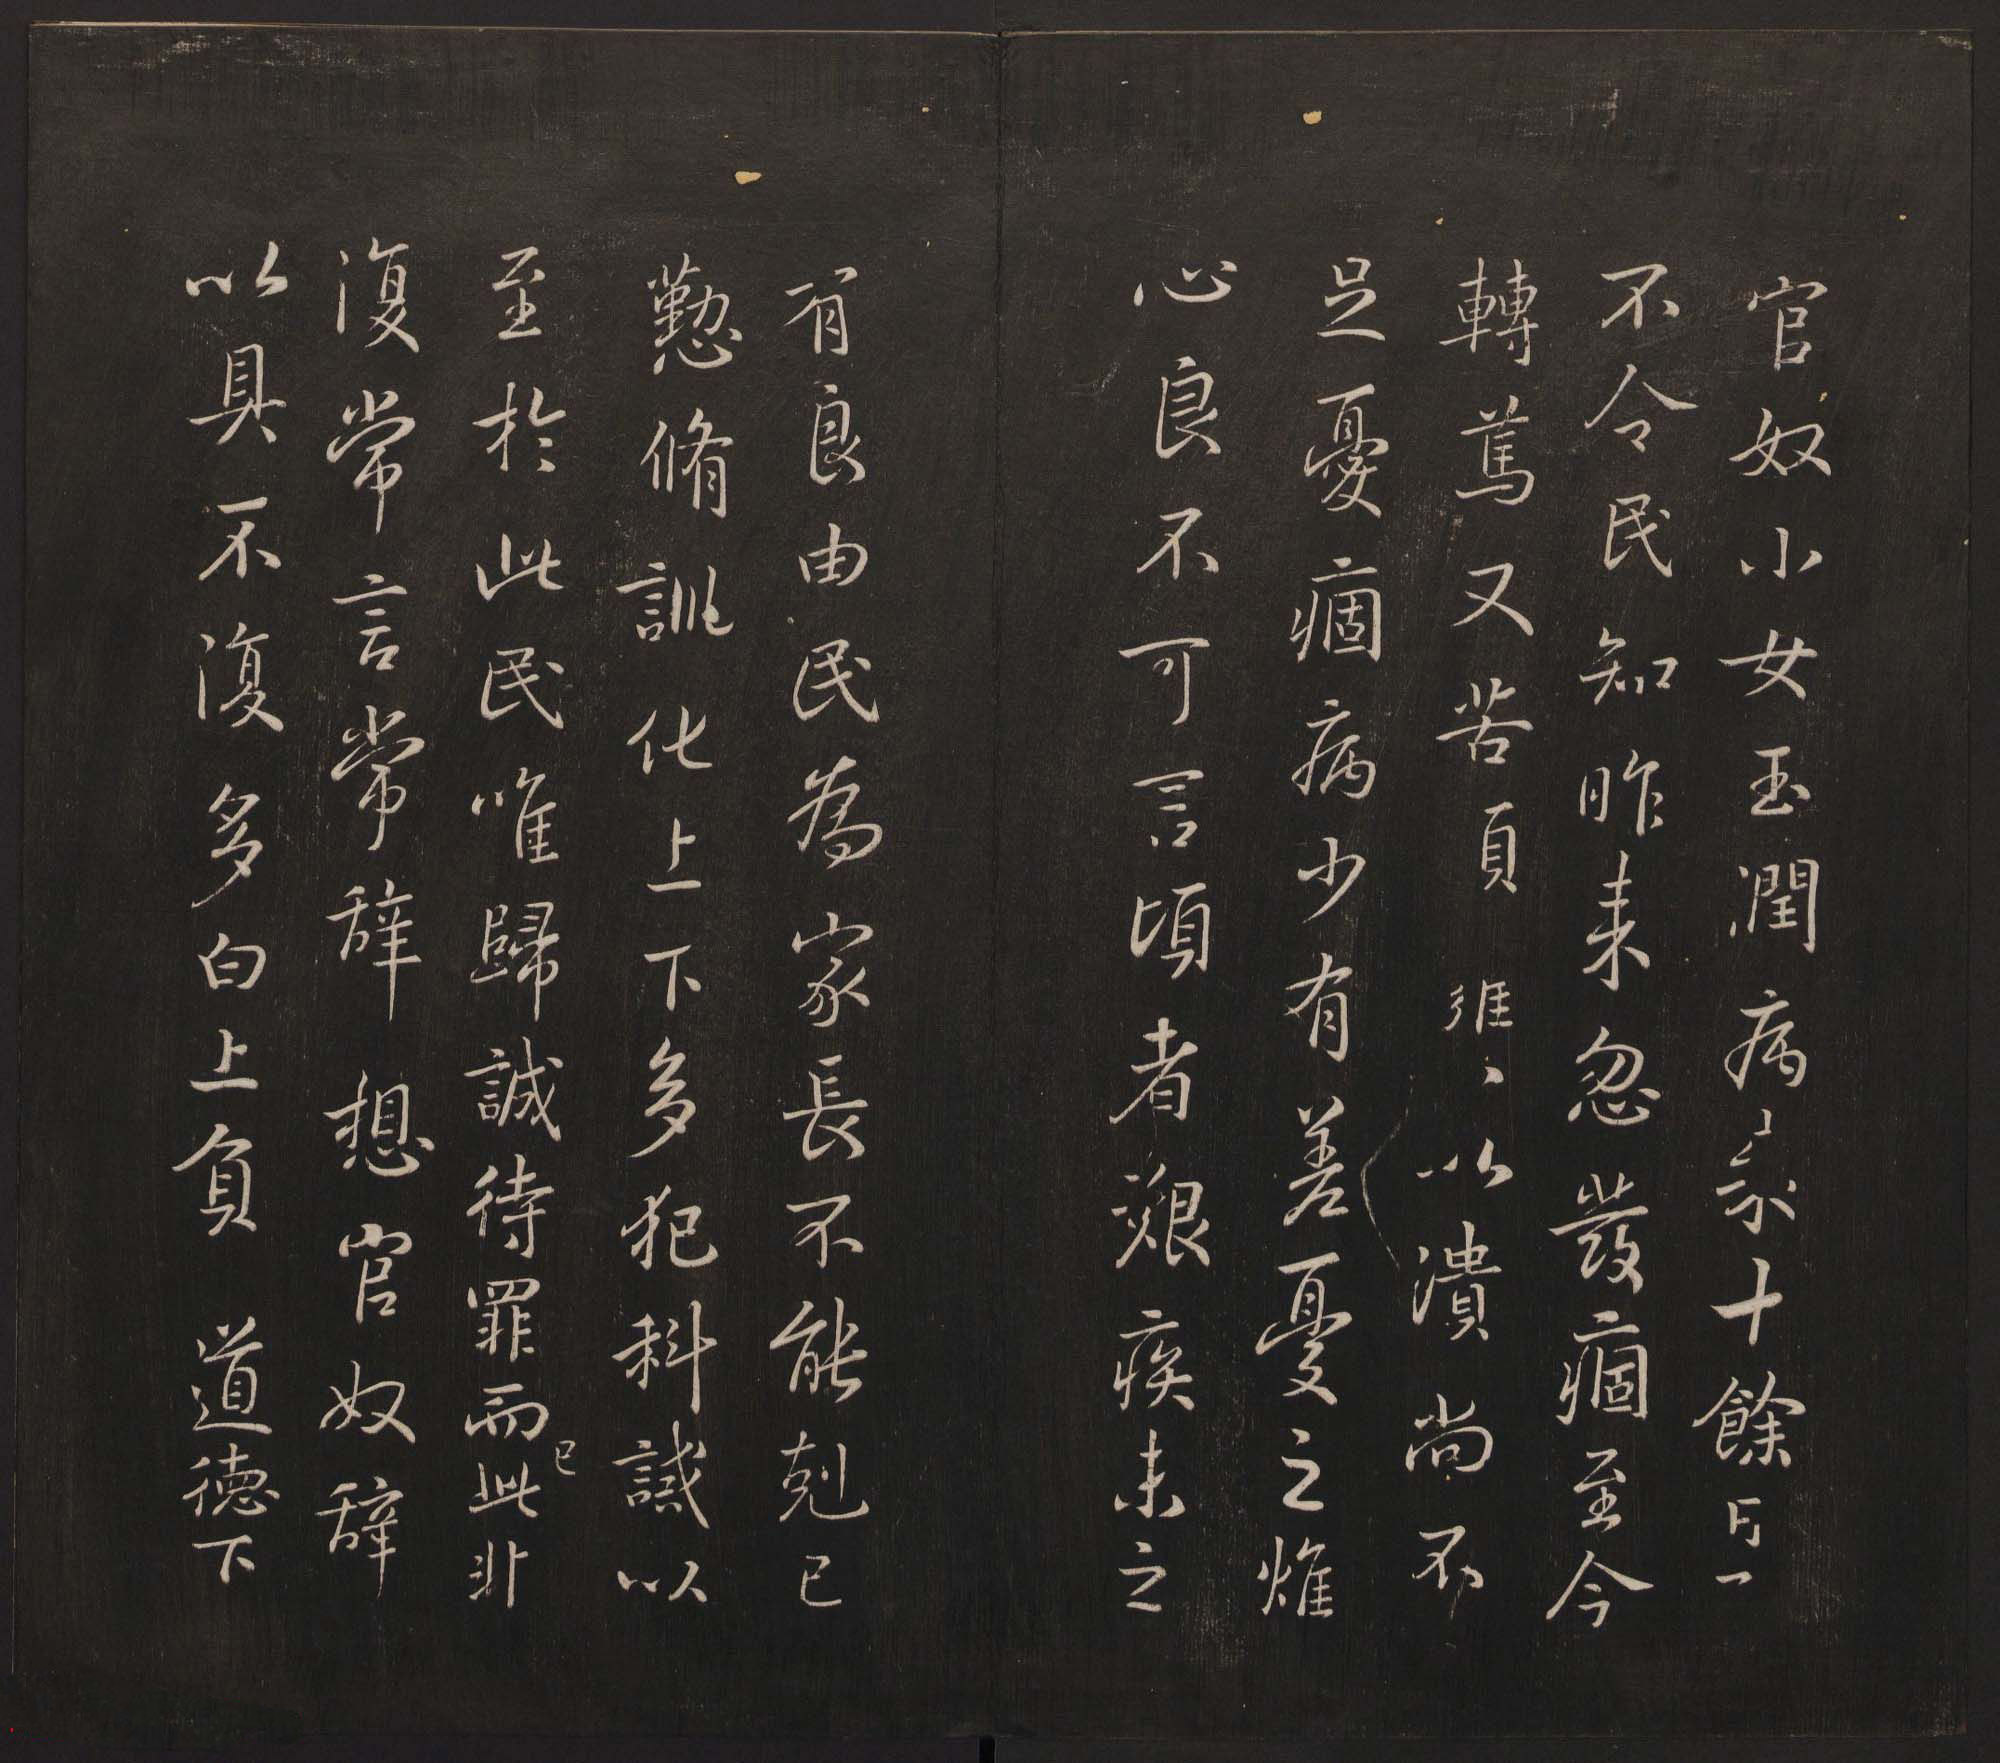 官奴小女玉潤病來十餘日一
不令民知昨來忽發痼至今
轉篤又苦頭𤺄以潰尚不
足憂痼病少有差憂之燋
心良不可言頃者艱疾未之
有良由民為家長不能剋己
懃脩訓化上下多犯科誡以
至於此民唯歸誠待罪而已此非
復常言常辭想官奴辭
以具不復多白上負道德下